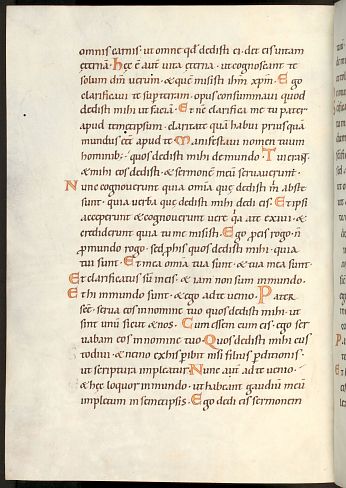 omnis carnis · ut omne qd dedisti ei · det eis uitam
ęternā · Hęc ē aut̄ uita ęterna · ut cognoscant te
solum dm̄ uerum · & quē misisti ihm xpm̄ · Ego
clarificaui te sup terram · opus consummaui quod
dedisti mihi ut faciā · Et nc̄ clarifica me tu pater
apud temetipsum · claritate quā habui priusquā
mundus eet apud te · Manifestaui nomen tuum
hominib; · quos dedisti mihi de mundo · Tui erant
& mihi eos dedisti · & sermonē meū seruauerunt ·
Nunc cognouerunt quia omīa quę dedisti m̄ abs te
sunt · quia uerba quę dedisti mihi dedi eis · Et ipsi
acceperunt & cognouerunt uere qa a te exiui · &
crediderunt quia tu me misisti · Ego p eis rogo · n̄
p mundo rogo · sed p his quos dedisti mihi · quia
tui sunt · Et mea omīa tua sunt · & tua mea sunt ·
Et clarificatus sū in eis · & iam non sum in mundo ·
Et hi in mundo sunt · & ego ad te uenio · Pater
scē · serua eos in nomine tuo quos dedisti mihi · ut
sint unū sicut & nos · Cum essem cum eis · ego ser
uabam eos in nomine tuo · Quos dedisti mihi
custodiui · & nemo ex his periit nisi filius pditionis ·
ut scriptura impleatur · Nunc aut̄ ad te uenio ·
& hęc loquor in mundo · ut habeant gaudiū meū
impletum in semetipsis · Ego dedi eis sermonem